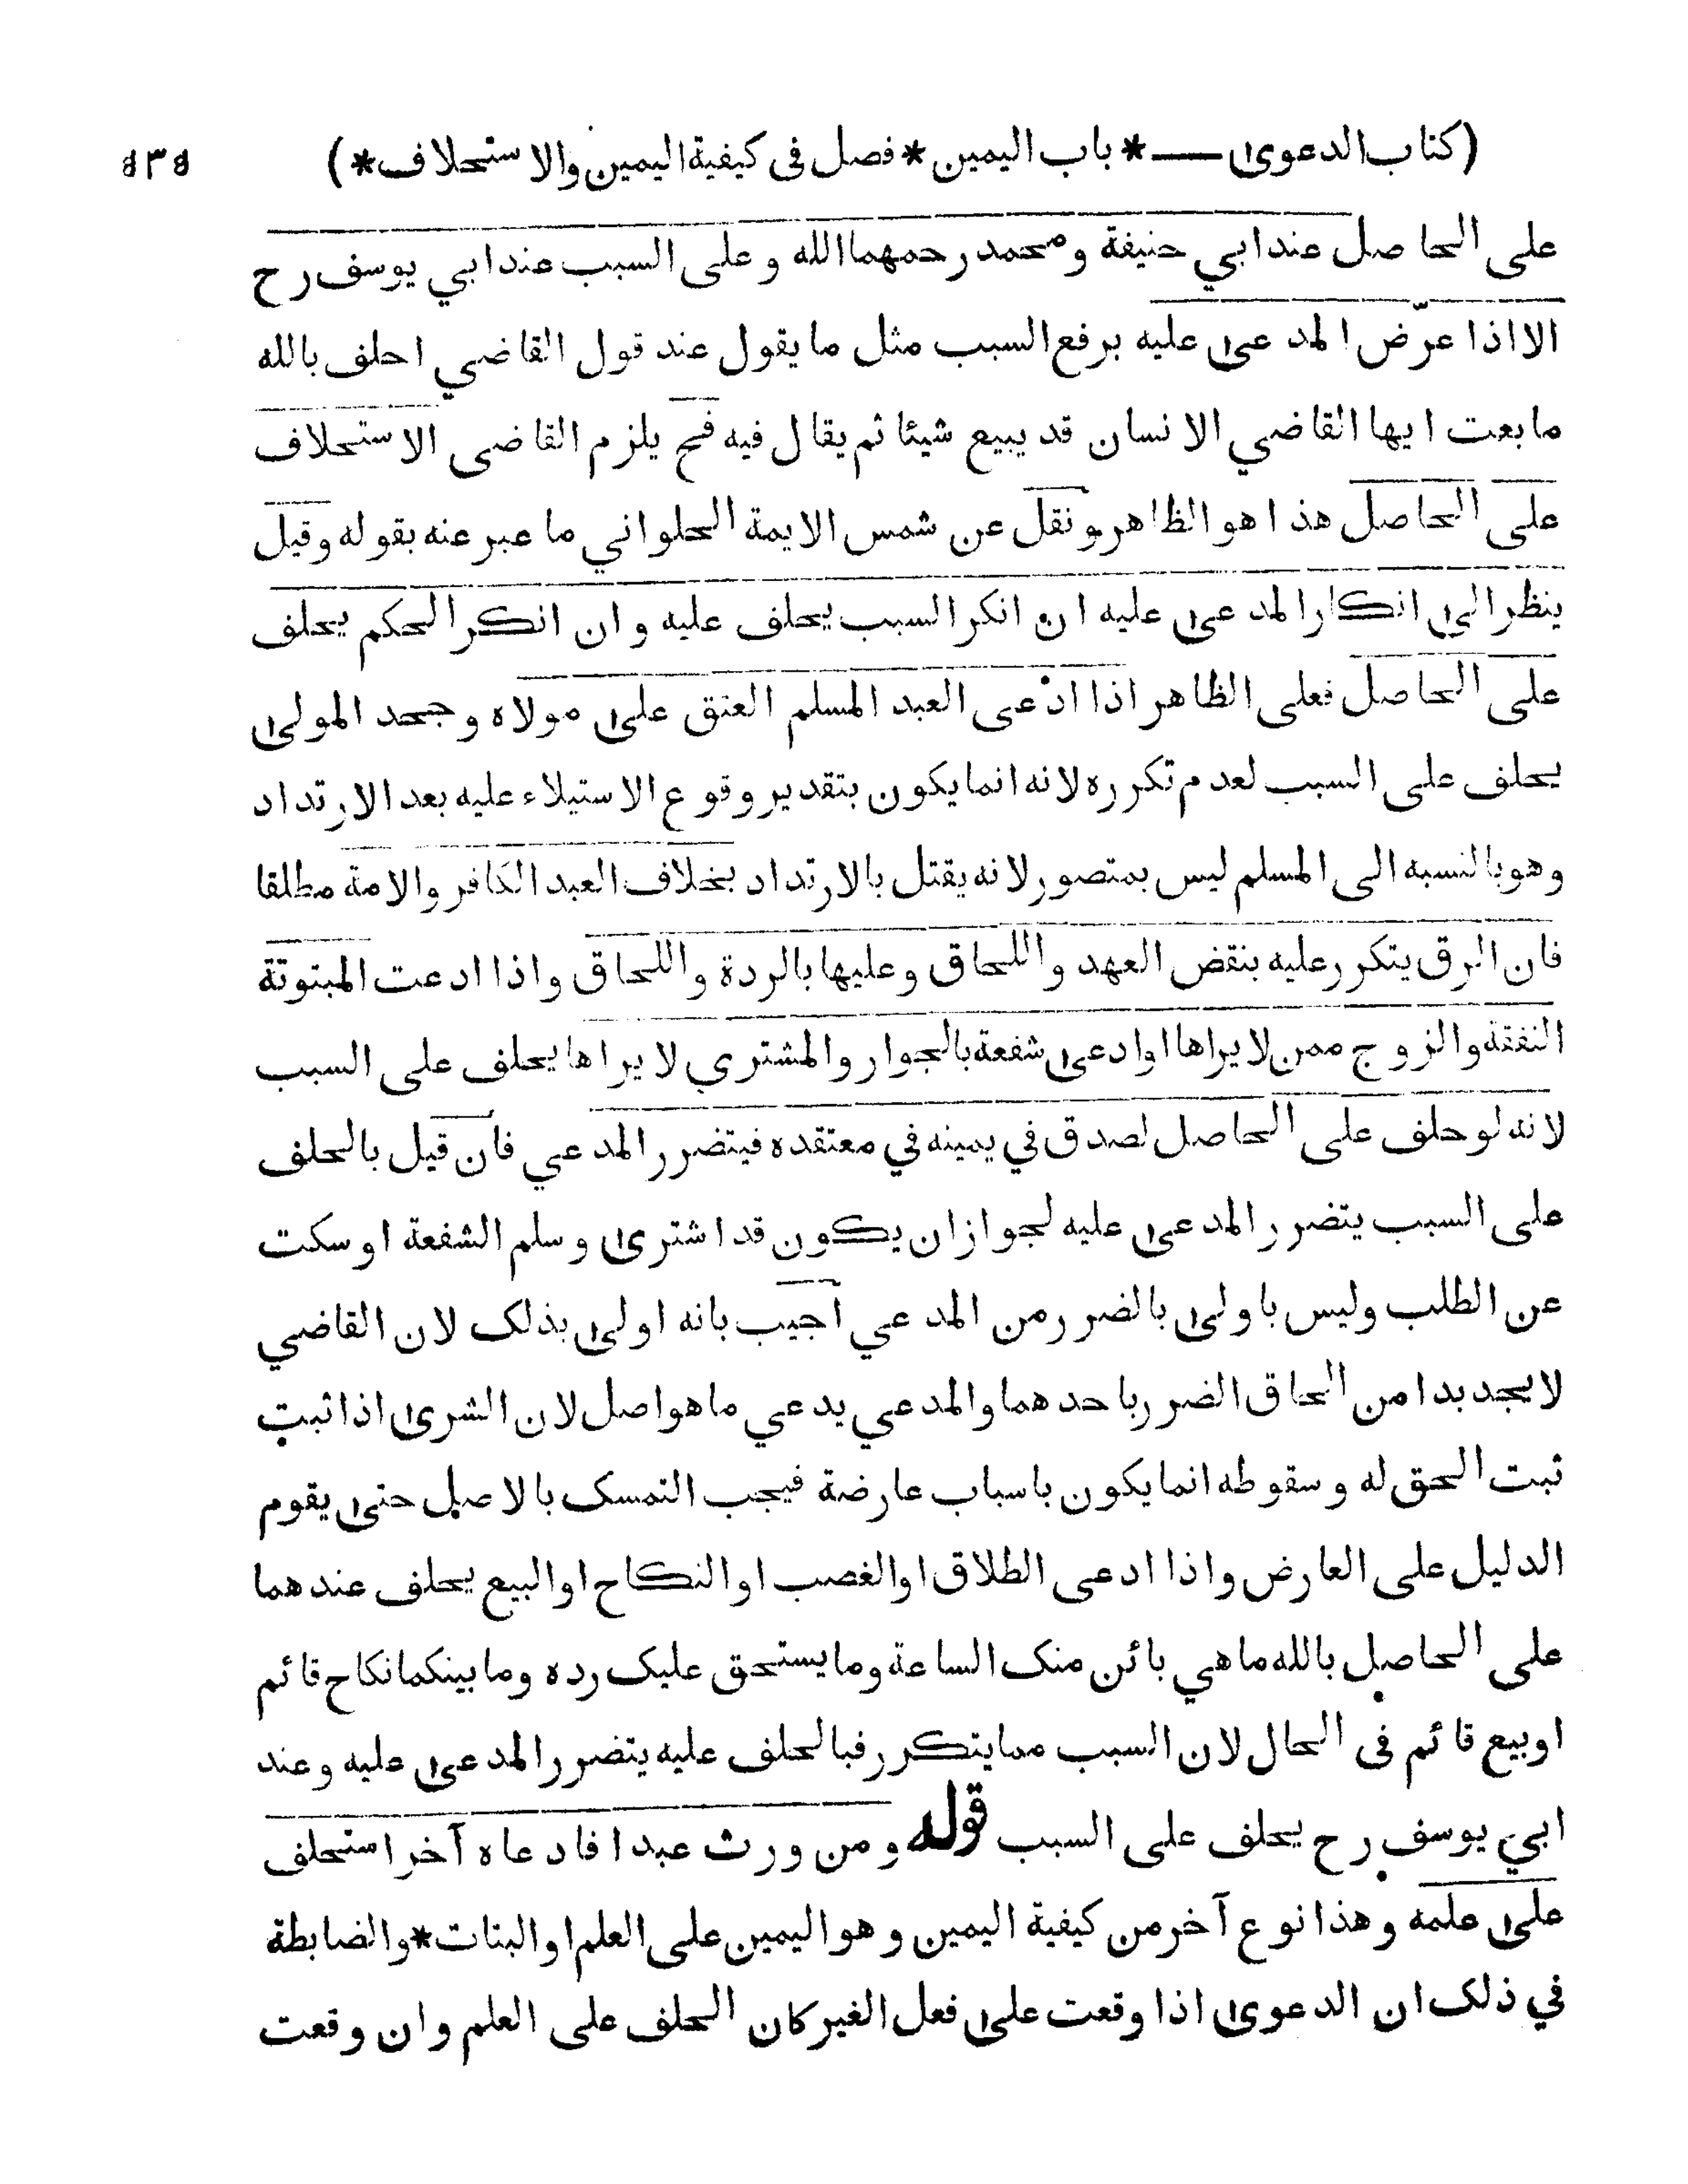 (كتاب الدعوى — * باب اليمين * فصل في كيفية اليمين والاستحلاف *) ٥٣٥
على الحاصل عند ابي حنيفة ومحمد رحمهما الله وعلى السبب عند ابي يوسف رح
الا اذا عرّض المدعى عليه برفع السبب مثل ما يقول عند قول القاضي احلف بالله
ما بعت ايها القاضي الانسان قد يبيع شيئا ثم يقال فيه فح يلزم القاضى الاستحلاف
على الحاصل هذا هو الظاهر ونقل عن شمس الايمة الحلواني ما عبر عنه بقوله وقيل
ينظر الى انكار المدعى عليه ان انكر السبب يحلف عليه وان انكر الحكم يحلف
على الحاصل فعلى الظاهر اذا ادّعى العبد المسلم العتق على مولاه وجحد المولى
يحلف على السبب لعدم تكرره لانه انما يكون بتقدير وقوع الاستيلاء عليه بعد الارتداد
وهو بالنسبه الى المسلم ليس بمتصور لانه يقتل بالارتداد بخلاف العبد الكافر والامة مطلقا
فان الرق يتكرر عليه بنقض العهد واللحاق وعليها بالردة واللحاق واذا ادعت المبتوتة
النفقة والزوج ممن لا يراها او ادعى شفعة بالجوار والمشتري لا يراها يحلف على السبب
لانه لو حلف على الحاصل لصدق في يمينه في معتقده فيتضرر المدعي فان قيل بالحلف
على السبب يتضرر المدعى عليه لجواز ان يكون قد اشترى وسلم الشفعة او سكت
عن الطلب وليس باولى بالضرر من المدعي اجيب بانه اولى بذلك لان القاضي
لا يجد بدا من الحاق الضرر باحدهما والمدعي يدعي ما هو اصل لان الشرى اذا ثبت
ثبت الحق له وسقوطه انما يكون باسباب عارضة فيجب التمسك بالاصل حتى يقوم
الدليل على العارض واذا ادعى الطلاق او الغصب او النكاح او البيع يحلف عندهما
على الحاصل بالله ما هي بائن منك الساعة وما يستحق عليك رده وما بينكما نكاح قائم
او بيع قائم في الحال لان السبب مما يتكرر فبالحلف عليه يتضرر المدعى عليه وعند
ابي يوسف رح يحلف على السبب قوله ومن ورث عبدا فادعاه آخر استحلف
على علمه وهذا نوع آخر من كيفية اليمين وهو اليمين على العلم او البتات * والضابطة
في ذلك ان الدعوى اذا وقعت على فعل الغير كان الحلف على العلم وان وقعت